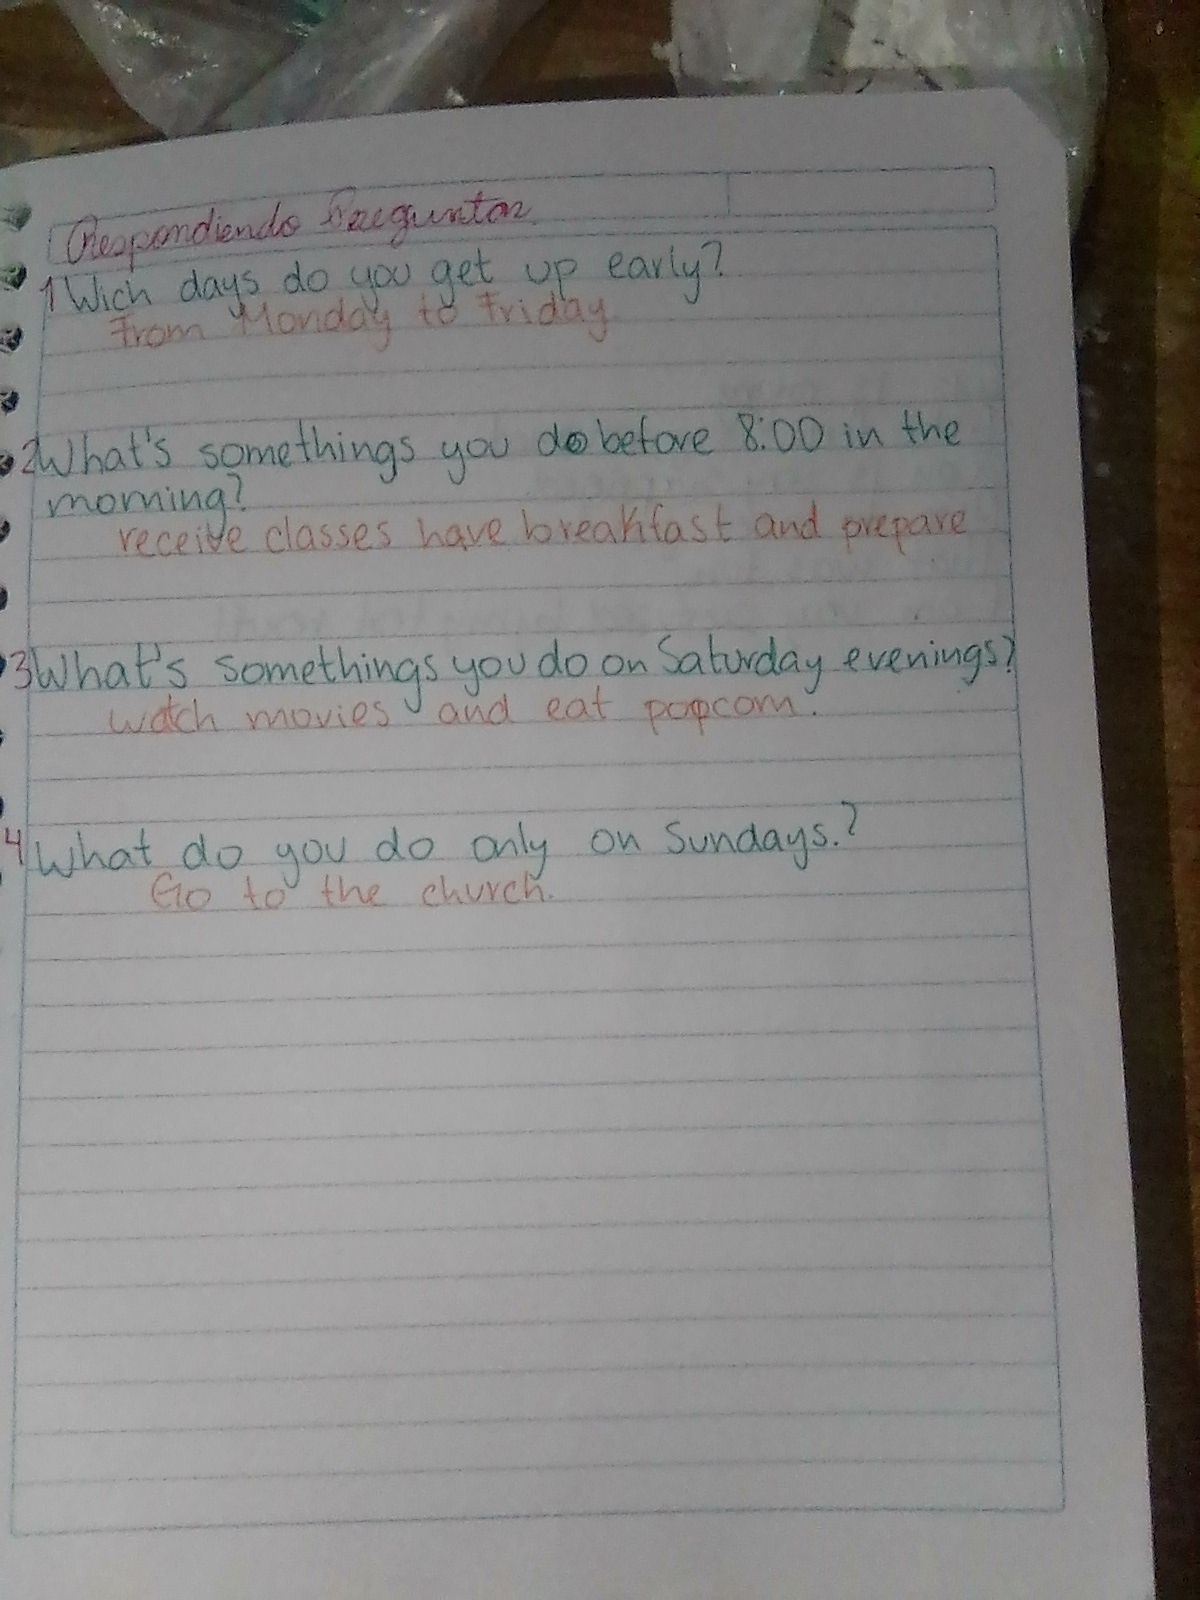 Respondiendo Preguntas
1 Wich days do you get up early?
From Monday to Friday
2 What's somethings you do before 8:00 in the
morning?
receive classes have breakfast and prepare
3 What's somethings you do on Saturday evenings?
watch movies and eat popcorn.
4 What do you do only on Sundays.?
Go to the church.